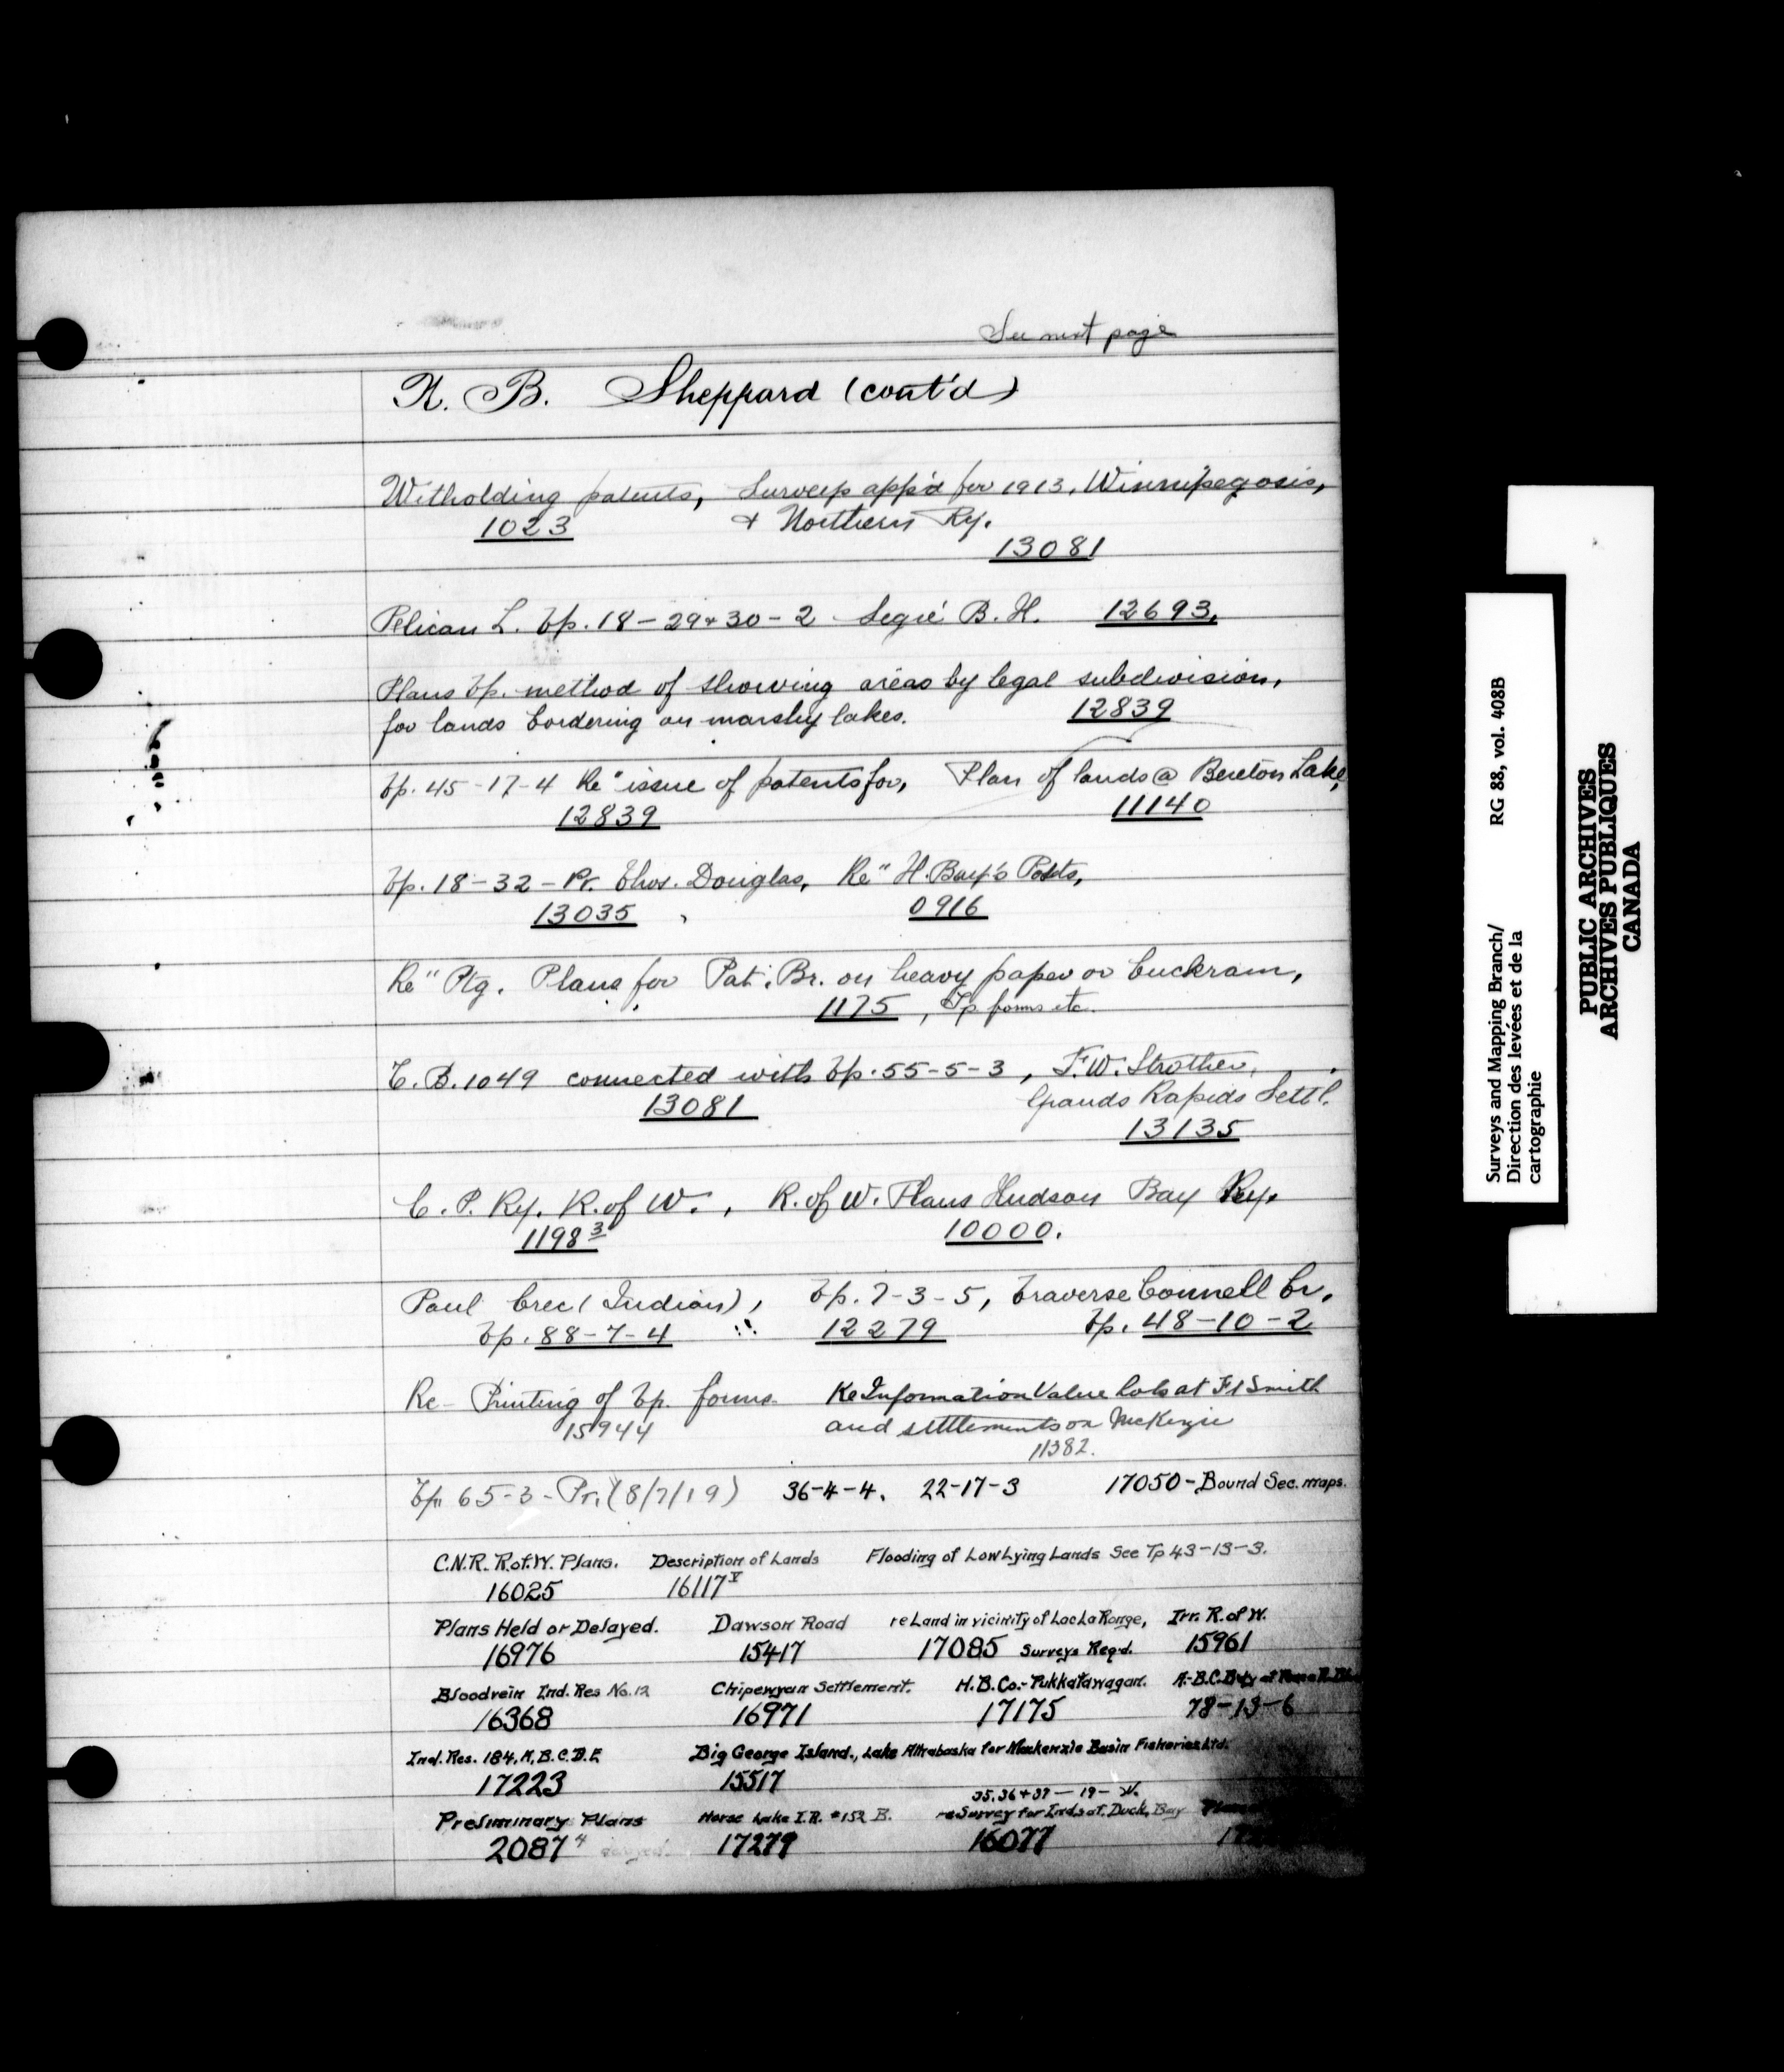 See next page
N. B. Sheppard (cont'd)
Witholding patents, Surveys app'd for 1913, Winnipegosis,
1023 & Northern Ry.
13081
Pelican L. Tp. 18-29+30-2 B. H. 12693.
Plans Tp. method of showing areas by legal subdivision,
for lands bordering on marshy lakes. 12839
Tp. 45-17-4 Re" issue of patents for, Plan of lands @ Lake,
12839 11140
Tp. 18-32-Pr. Thos. Douglas, Re" H. Bay's Posts,
13035 0916
Re" Ptg. Plans for Pat. Br. on heavy paper or buckram,
1175, Tp forms etc.
C.B. 1049 connected with Tp. 55-5-3, F.W. Strother,
13081 Grands Rapids Settl.
13135
C. P. Ry. R. of W., R. of W. Plans Hudson Bay Ry.
1198³ 10000.
Paul Cree (Indian), Tp. 7-3-5, Traverse Connell Cr.
Tp. 88-7-4 12279 Tp. 48-10-2
Re- Printing of Tp. forms Re Information Value Lots at Ft Smith
15944 and settlements on McKenzie
11382.
Tp. 65-3-Pr. (8/7/19) 36-4-4. 22-17-3 17050-Bound Sec. maps.
C.N.R. R.of.W. Plans. Description of Lands Flooding of Low Lying Lands See Tp 43-13-3.
16025 16117ⱽ
Plans Held or Delayed. Dawson Road re Land in vicinity of Lac La Ronge, Irr. R. of W.
16976 15417 17085 Surveys Reqd. 15961
Bloodvein Ind. Res No. 12 Chipewyan Settlement. H.B.Co.- Pukkatawagan. A.-B.C. Bdy at
16368 16971 17175 78-13-6
Ind. Res. 184, A, B. C. D. E Big George Island., Lake Athabaska for Mackenzie Basin Fisheries Ltd.
17223 15517
35.36+37-19-W.
Preliminary Plans Horse Lake I.R. #152 B. re Survey for Inds at. Duck Bay
2087⁴ 17279 16077
Surveys and Mapping Branch/ RG 88, vol. 408B
Direction des levées et de la
cartographie
PUBLIC ARCHIVES
ARCHIVES PUBLIQUES
CANADA